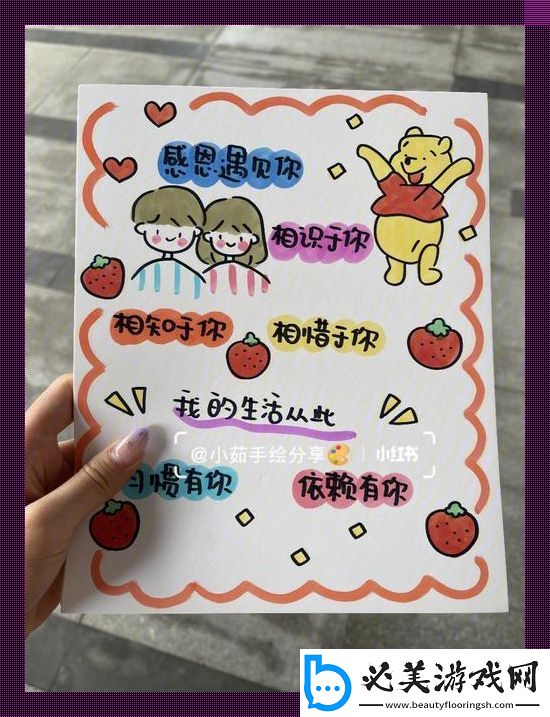 感恩遇见你
相识于你
相知于你
相惜于你
我的生活从此
@小茹手绘分享 | 小红书
习惯有你
依赖有你
必美游戏网
www.beautyflooringsh.com